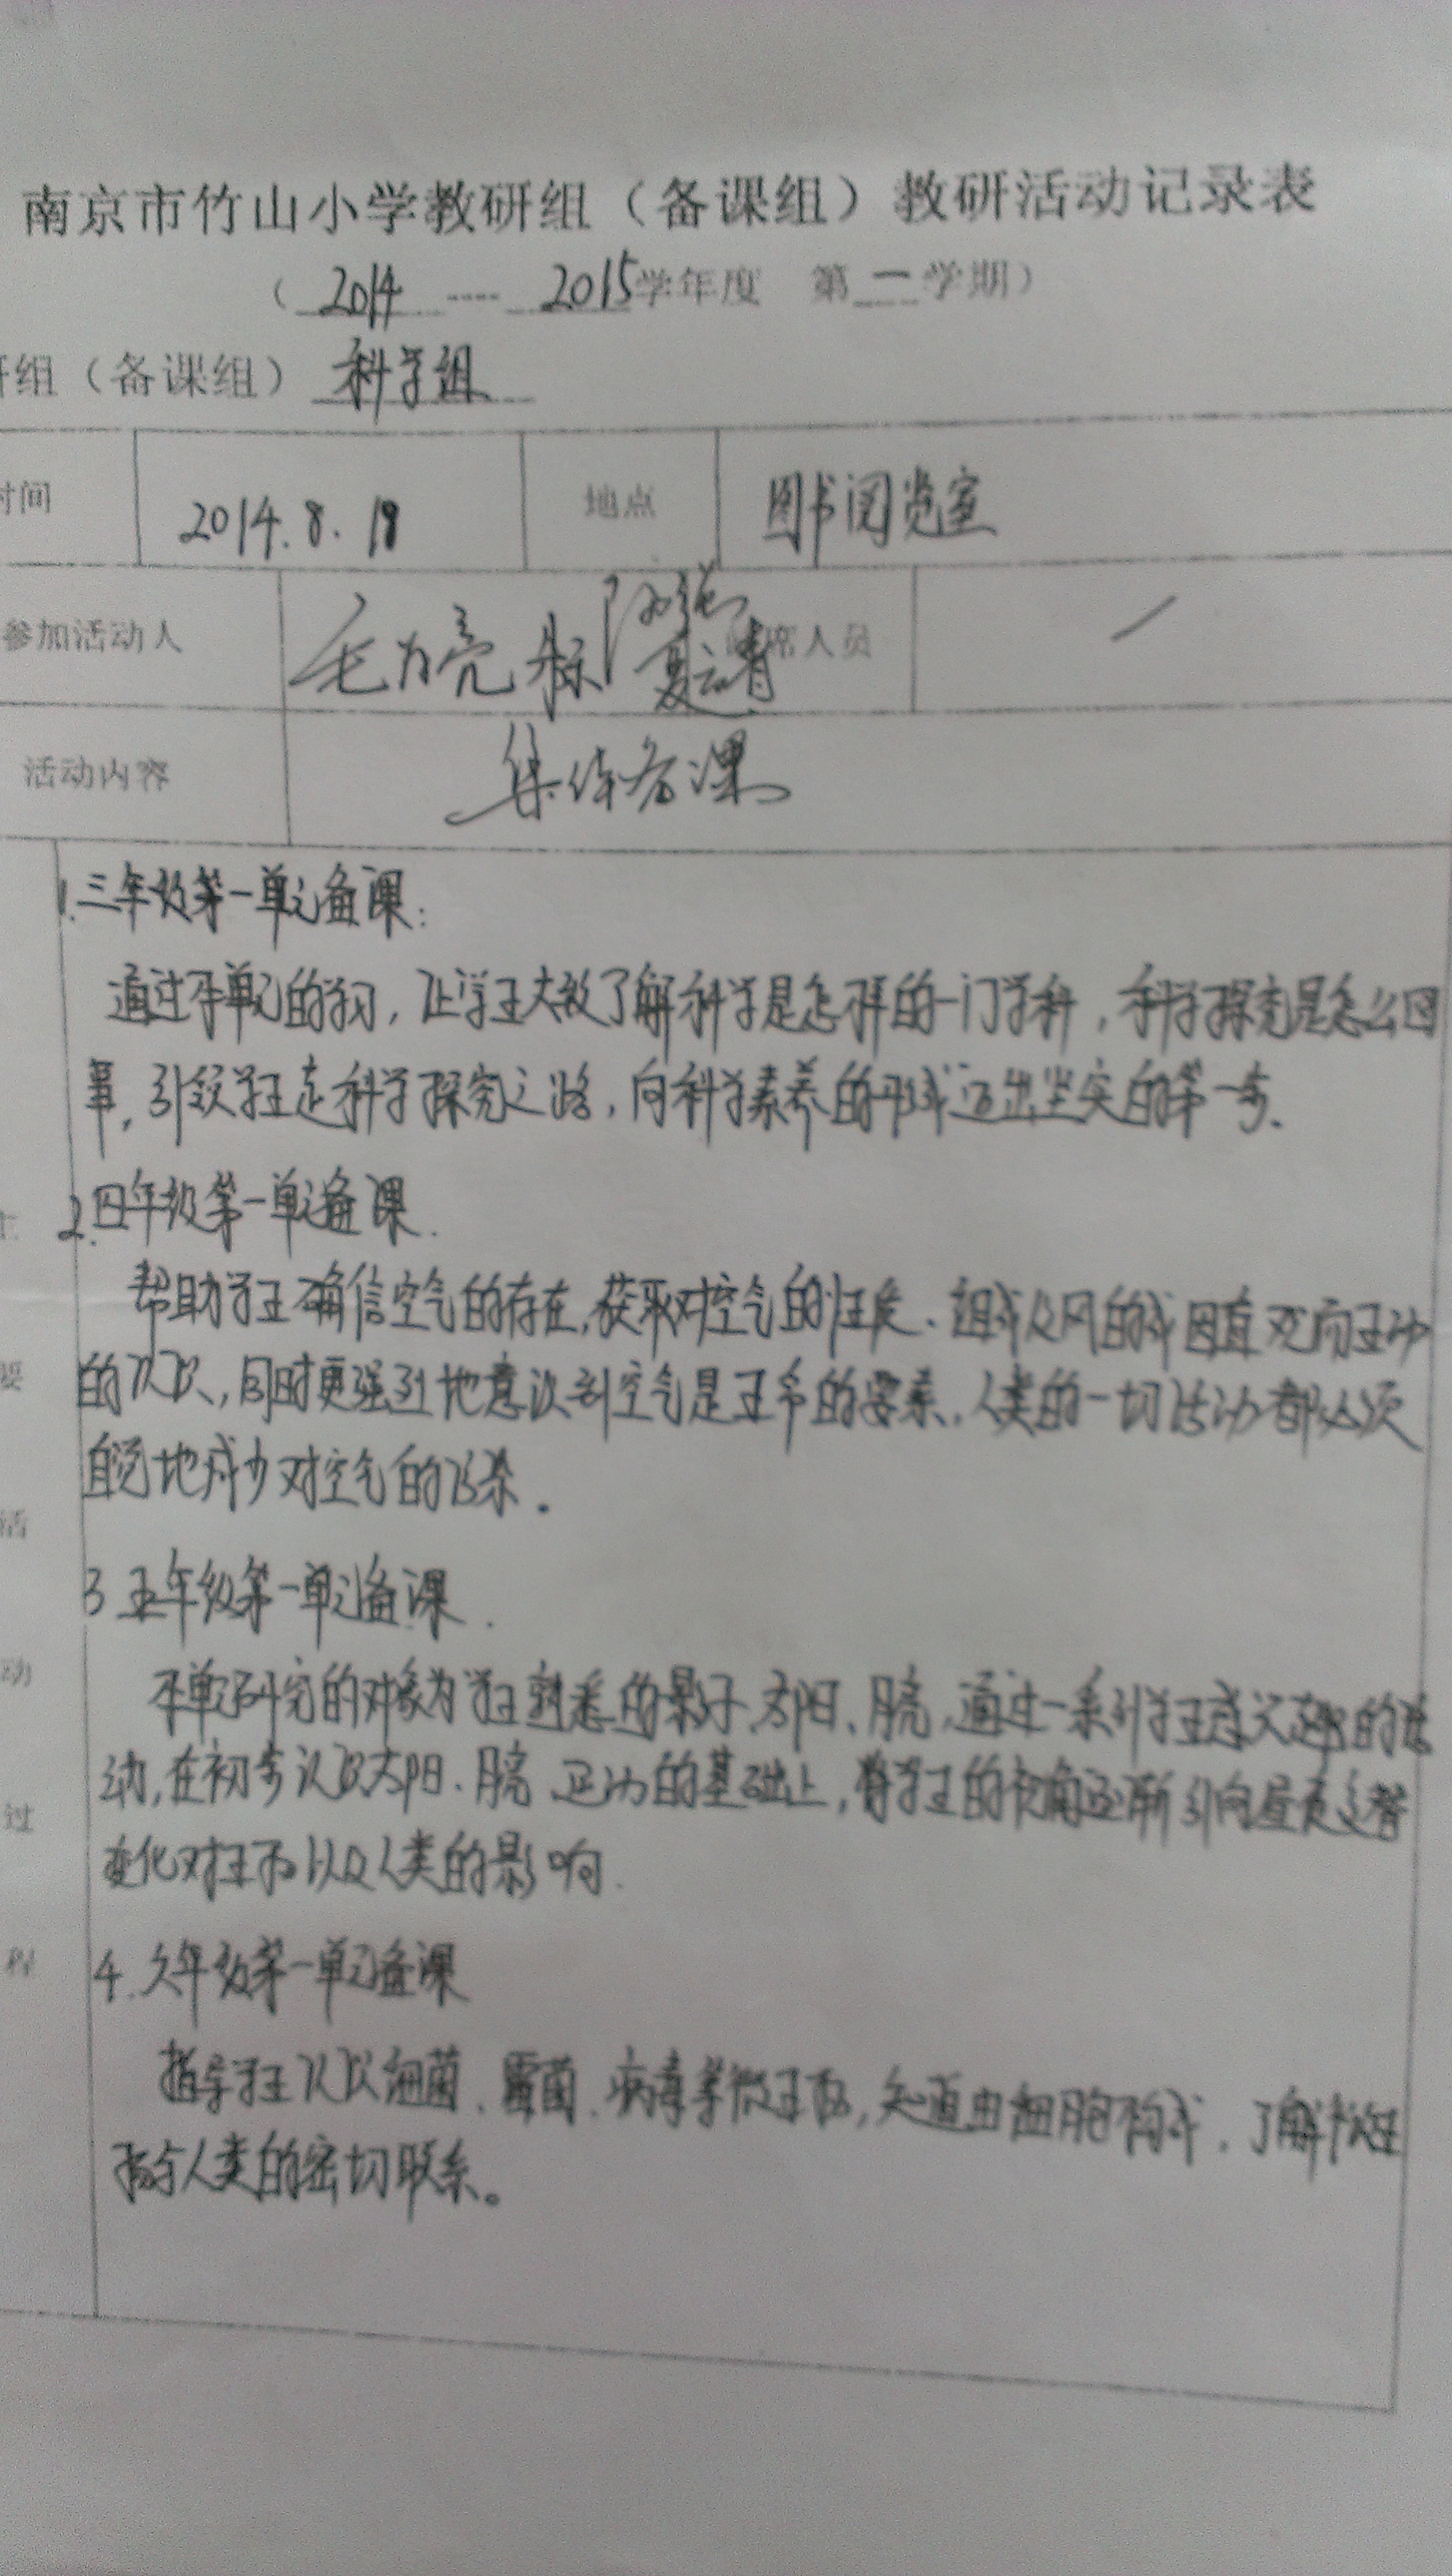 南京市竹山小学教研组（备课组）教研活动记录表
（2014----2015学年度 第一学期）
研组（备课组）科学组
时间 2014.8.18 地点 图书阅览室
参加活动人 毛为亮 夏云青 席人员 /
活动内容 集体备课
1.三年级第一单元备课：
通过本单元的学习，让学生大致了解科学是怎样的一门学科，科学探究是怎么回
事，引领学生走科学探究之路，向科学素养的形成迈出坚实的第一步.
2.四年级第一单元备课.
要 帮助学生确信空气的存在，获取对空气的性质、组成及风的成因直观而生动
的认识，同时更强烈地意识到空气是生命的要素，人类的一切活动都必须
自觉地减少对空气的污染.
活
3 五年级第一单元备课.
动 本单元研究的对象为学生熟悉的影子、太阳、月亮，通过一系列学生感兴趣的活
动，在初步认识太阳、月亮 运动的基础上，将学生的视角逐渐引向昼夜交替
过 变化对生物以及人类的影响.
程 4.六年级第一单元备课
指导学生认识细菌、霉菌、病毒等微生物，知道由细胞构成，了解微生
物与人类的密切联系。